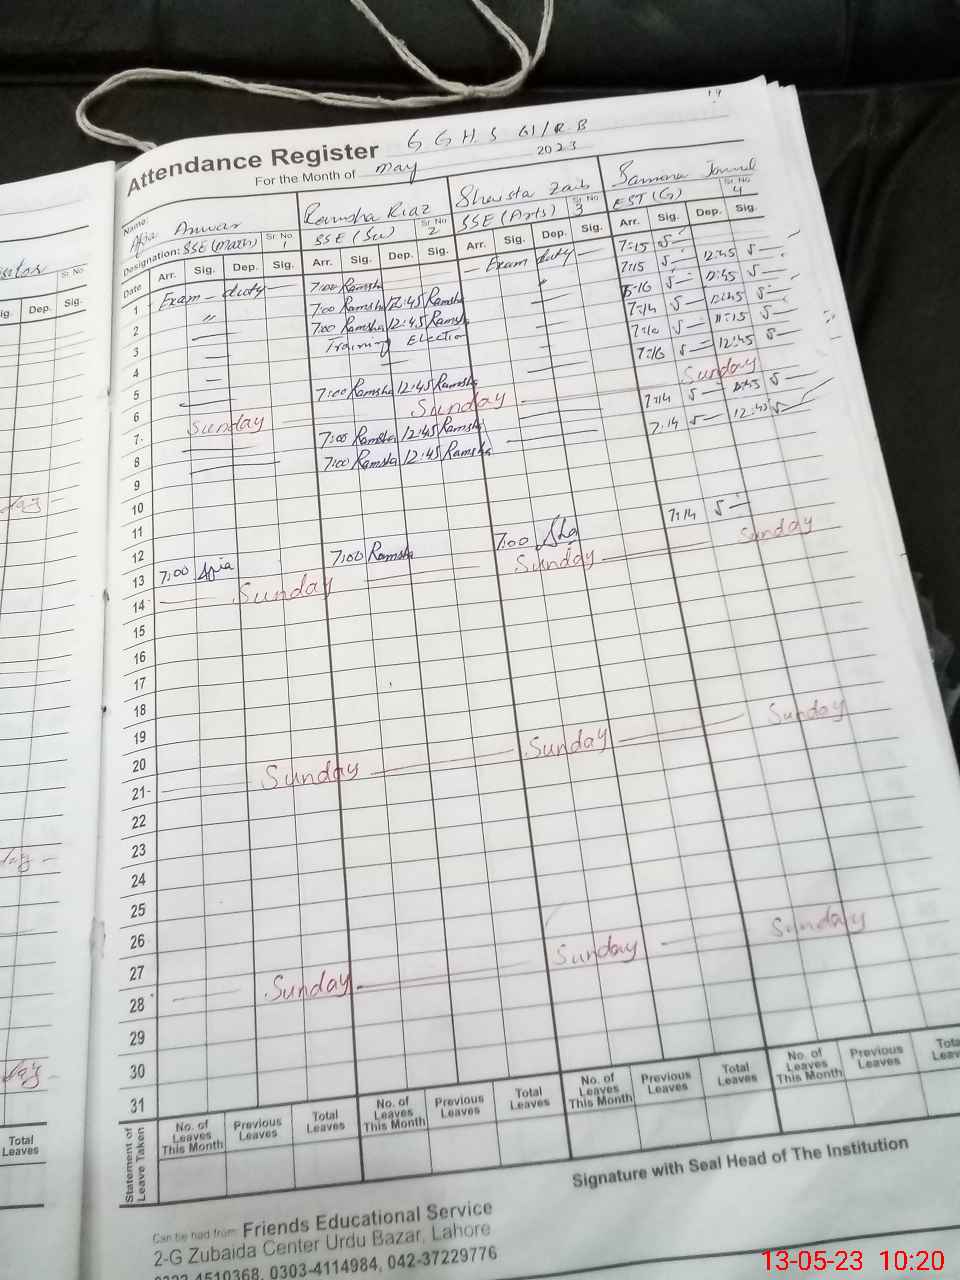 19
Attendance Register G G H.S 61/R.B
For the Month of May 2023
Name: Afia Anwar Ramsha Riaz Shaista Zaib
Designation: SSE (Math) Sr. No 1 SSE (Sci) Sr. No 2 SSE (Arts) Sr. No 3 EST (G) Sr. No 4
Date Arr. Sig. Dep. Sig. Arr. Sig. Dep. Sig. Arr. Sig. Dep. Sig. Arr. Sig. Dep. Sig.
1 Exam - duty - 7:00 Ramsha - Exam duty - 7:15
2 " 7:00 Ramsha 12:45 Ramsha " 7:15 12:45
3 7:00 Ramsha 12:45 Ramsha 12:45
4 Training Election 7:14 12:45
5 7:00 Ramsha 12:45 Ramsha 7:16 12:45
6
7. Sunday Sunday Sunday
8 7:00 Ramsha 12:45 Ramsha 7:14 12:45
9 7:00 Ramsha 12:45 Ramsha 7:14 12:45
10
11
12
13 7:00 Afia 7:00 Ramsha 7:00 Sha 7:14
14 Sunday Sunday Sunday
15
16
17
18
19
20
21 Sunday Sunday Sunday
22
23
24
25
26
27
28 Sunday Sunday Sunday
29
30
31
Statement of Leave Taken No. of Leaves This Month Previous Leaves Total Leaves No. of Leaves This Month Previous Leaves Total Leaves No. of Leaves This Month Previous Leaves Total Leaves No. of Leaves This Month Previous Leaves
Signature with Seal Head of The Institution
Can be had from Friends Educational Service
2-G Zubaida Center Urdu Bazar, Lahore
0303-4114984, 042-37229776
Sr. No
Dep. Sig.
Total Leaves
13-05-23 10:20